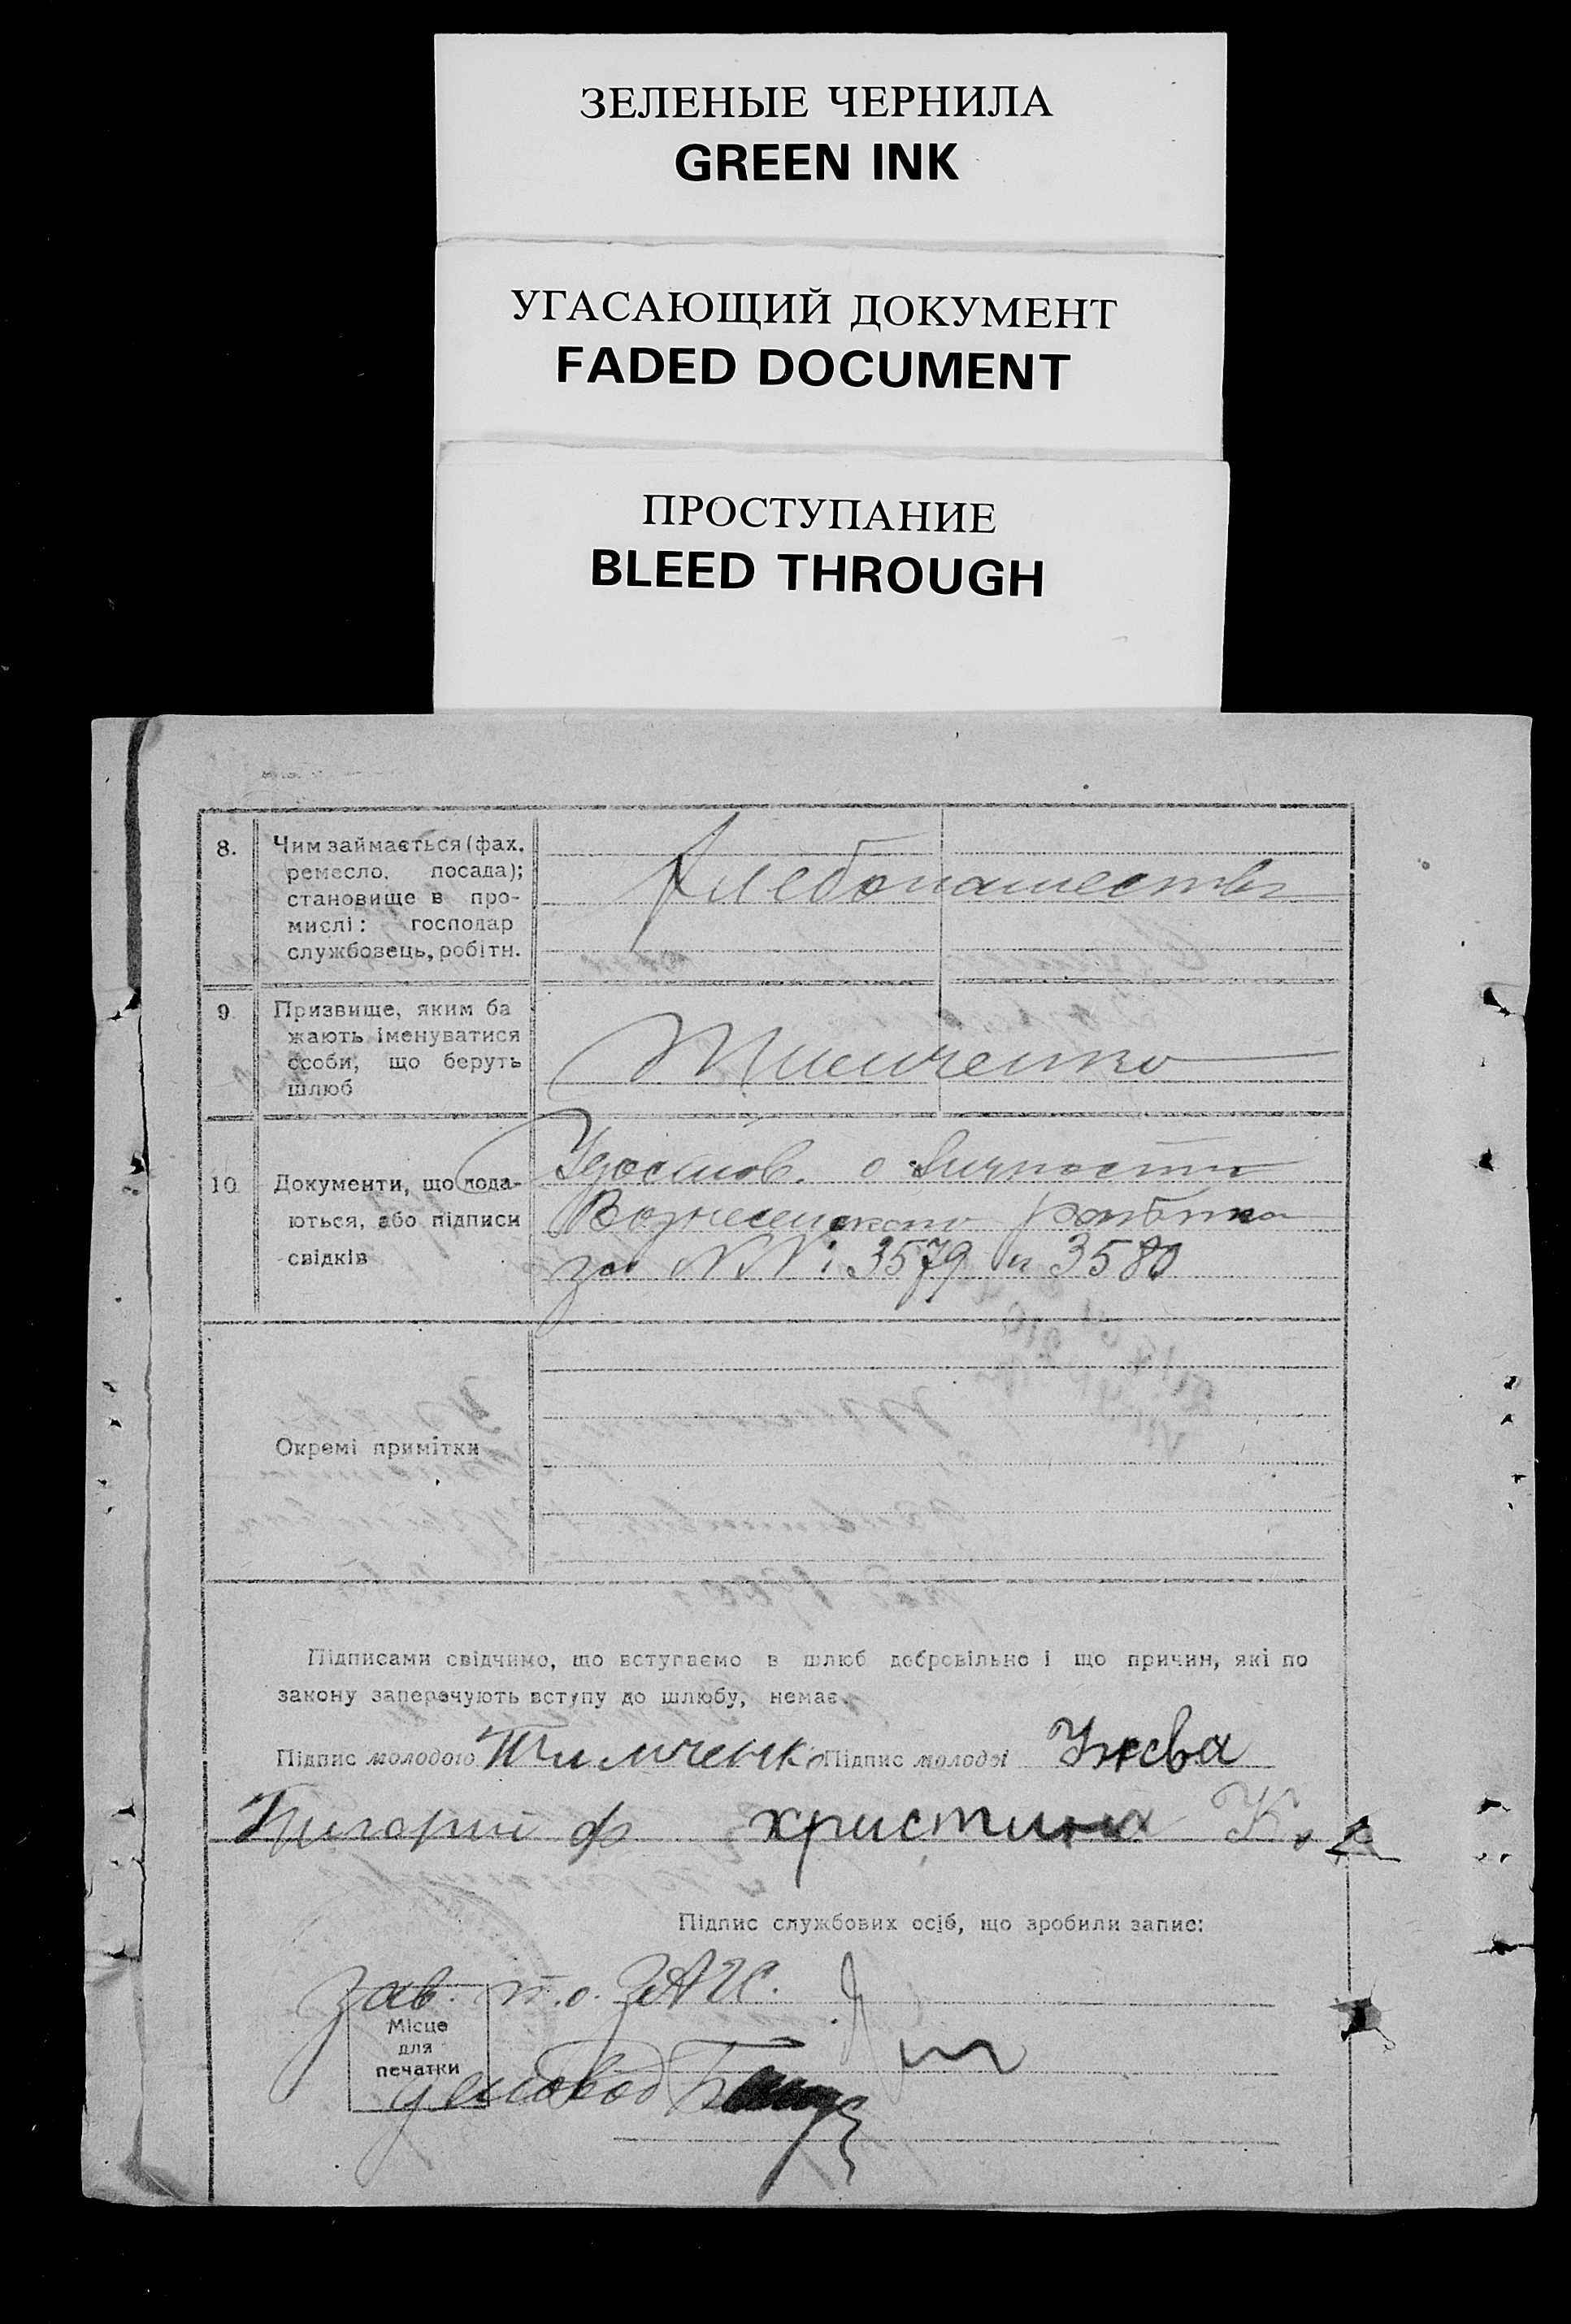 ЗЕЛЕНЫЕ ЧЕРНИЛА
GREEN INK
УГАСАЮЩИЙ ДОКУМЕНТ
FADED DOCUMENT
ПРОСТУПАНИЕ
BLEED THROUGH
8.
Чим займається (фах,
ремесло, посада);
становище в про-
мислі: господар
службовець, робітн.
Хлебопашество
9
Призвище, яким ба
жають іменуватися
особи, що беруть
шлюб
Тимченко
10
Документи, що пода-
ються, або підписи
свідків
Удостов. о личности
Вознесенского
за NN: 3579 и 3580
Окремі примітки
Підписами свідчимо, що вступаємо в шлюб добровільно і що причин, які по
закону заперечують вступу до шлюбу, немає.
Підпис молодого Тимченко Підпис молодої
Григорий ф христина К.
Підпис службових осіб, що зробили запис:
Зав. п.о. ЗАГС.
Місце
для
печатки